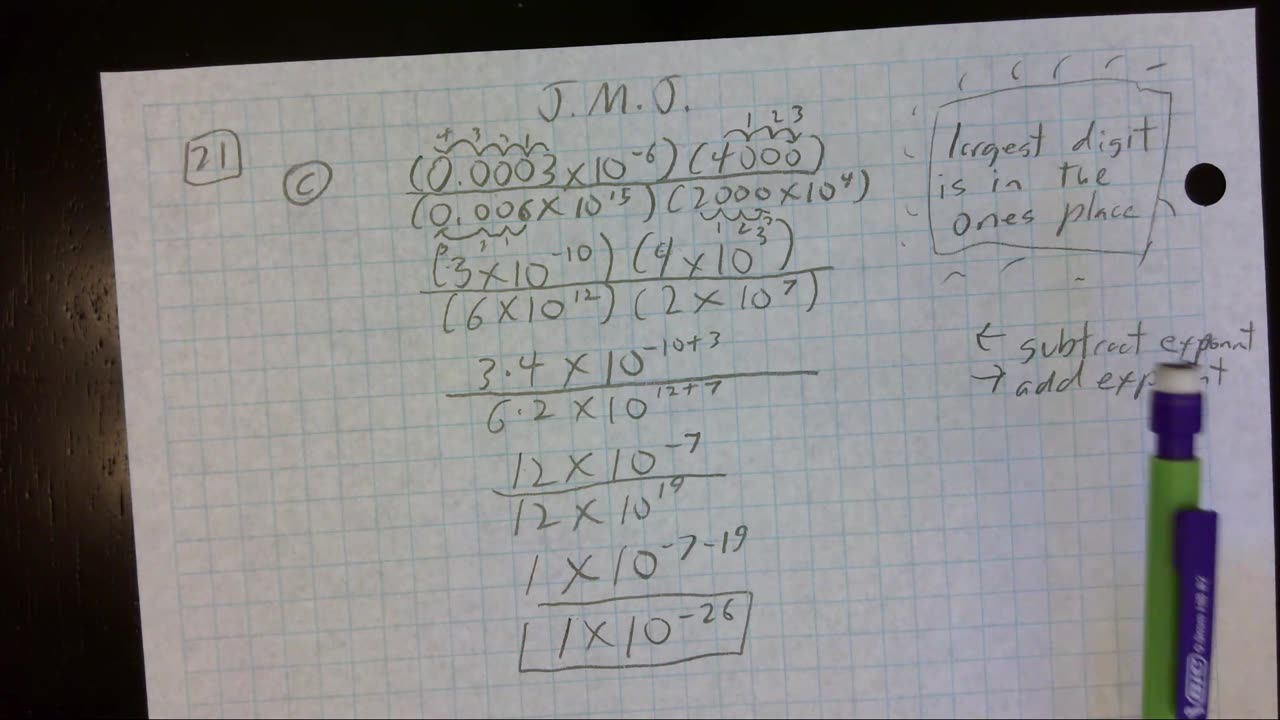 J.M.J.
21
c
4 3 2 1
1 2 3
(0.0003×10⁻⁶)(4000)
(0.006×10¹⁵)(2000×10⁴)
3 2 1
1 2 3
(3×10⁻¹⁰)(4×10³)
(6×10¹²)(2×10⁷)
3·4×10⁻¹⁰⁺³
6·2×10¹²⁺⁷
12×10⁻⁷
12×10¹⁹
1×10⁻⁷⁻¹⁹
1×10⁻²⁶
largest digit
is in the
ones place
← subtract exponnt
→ add exp
BIC